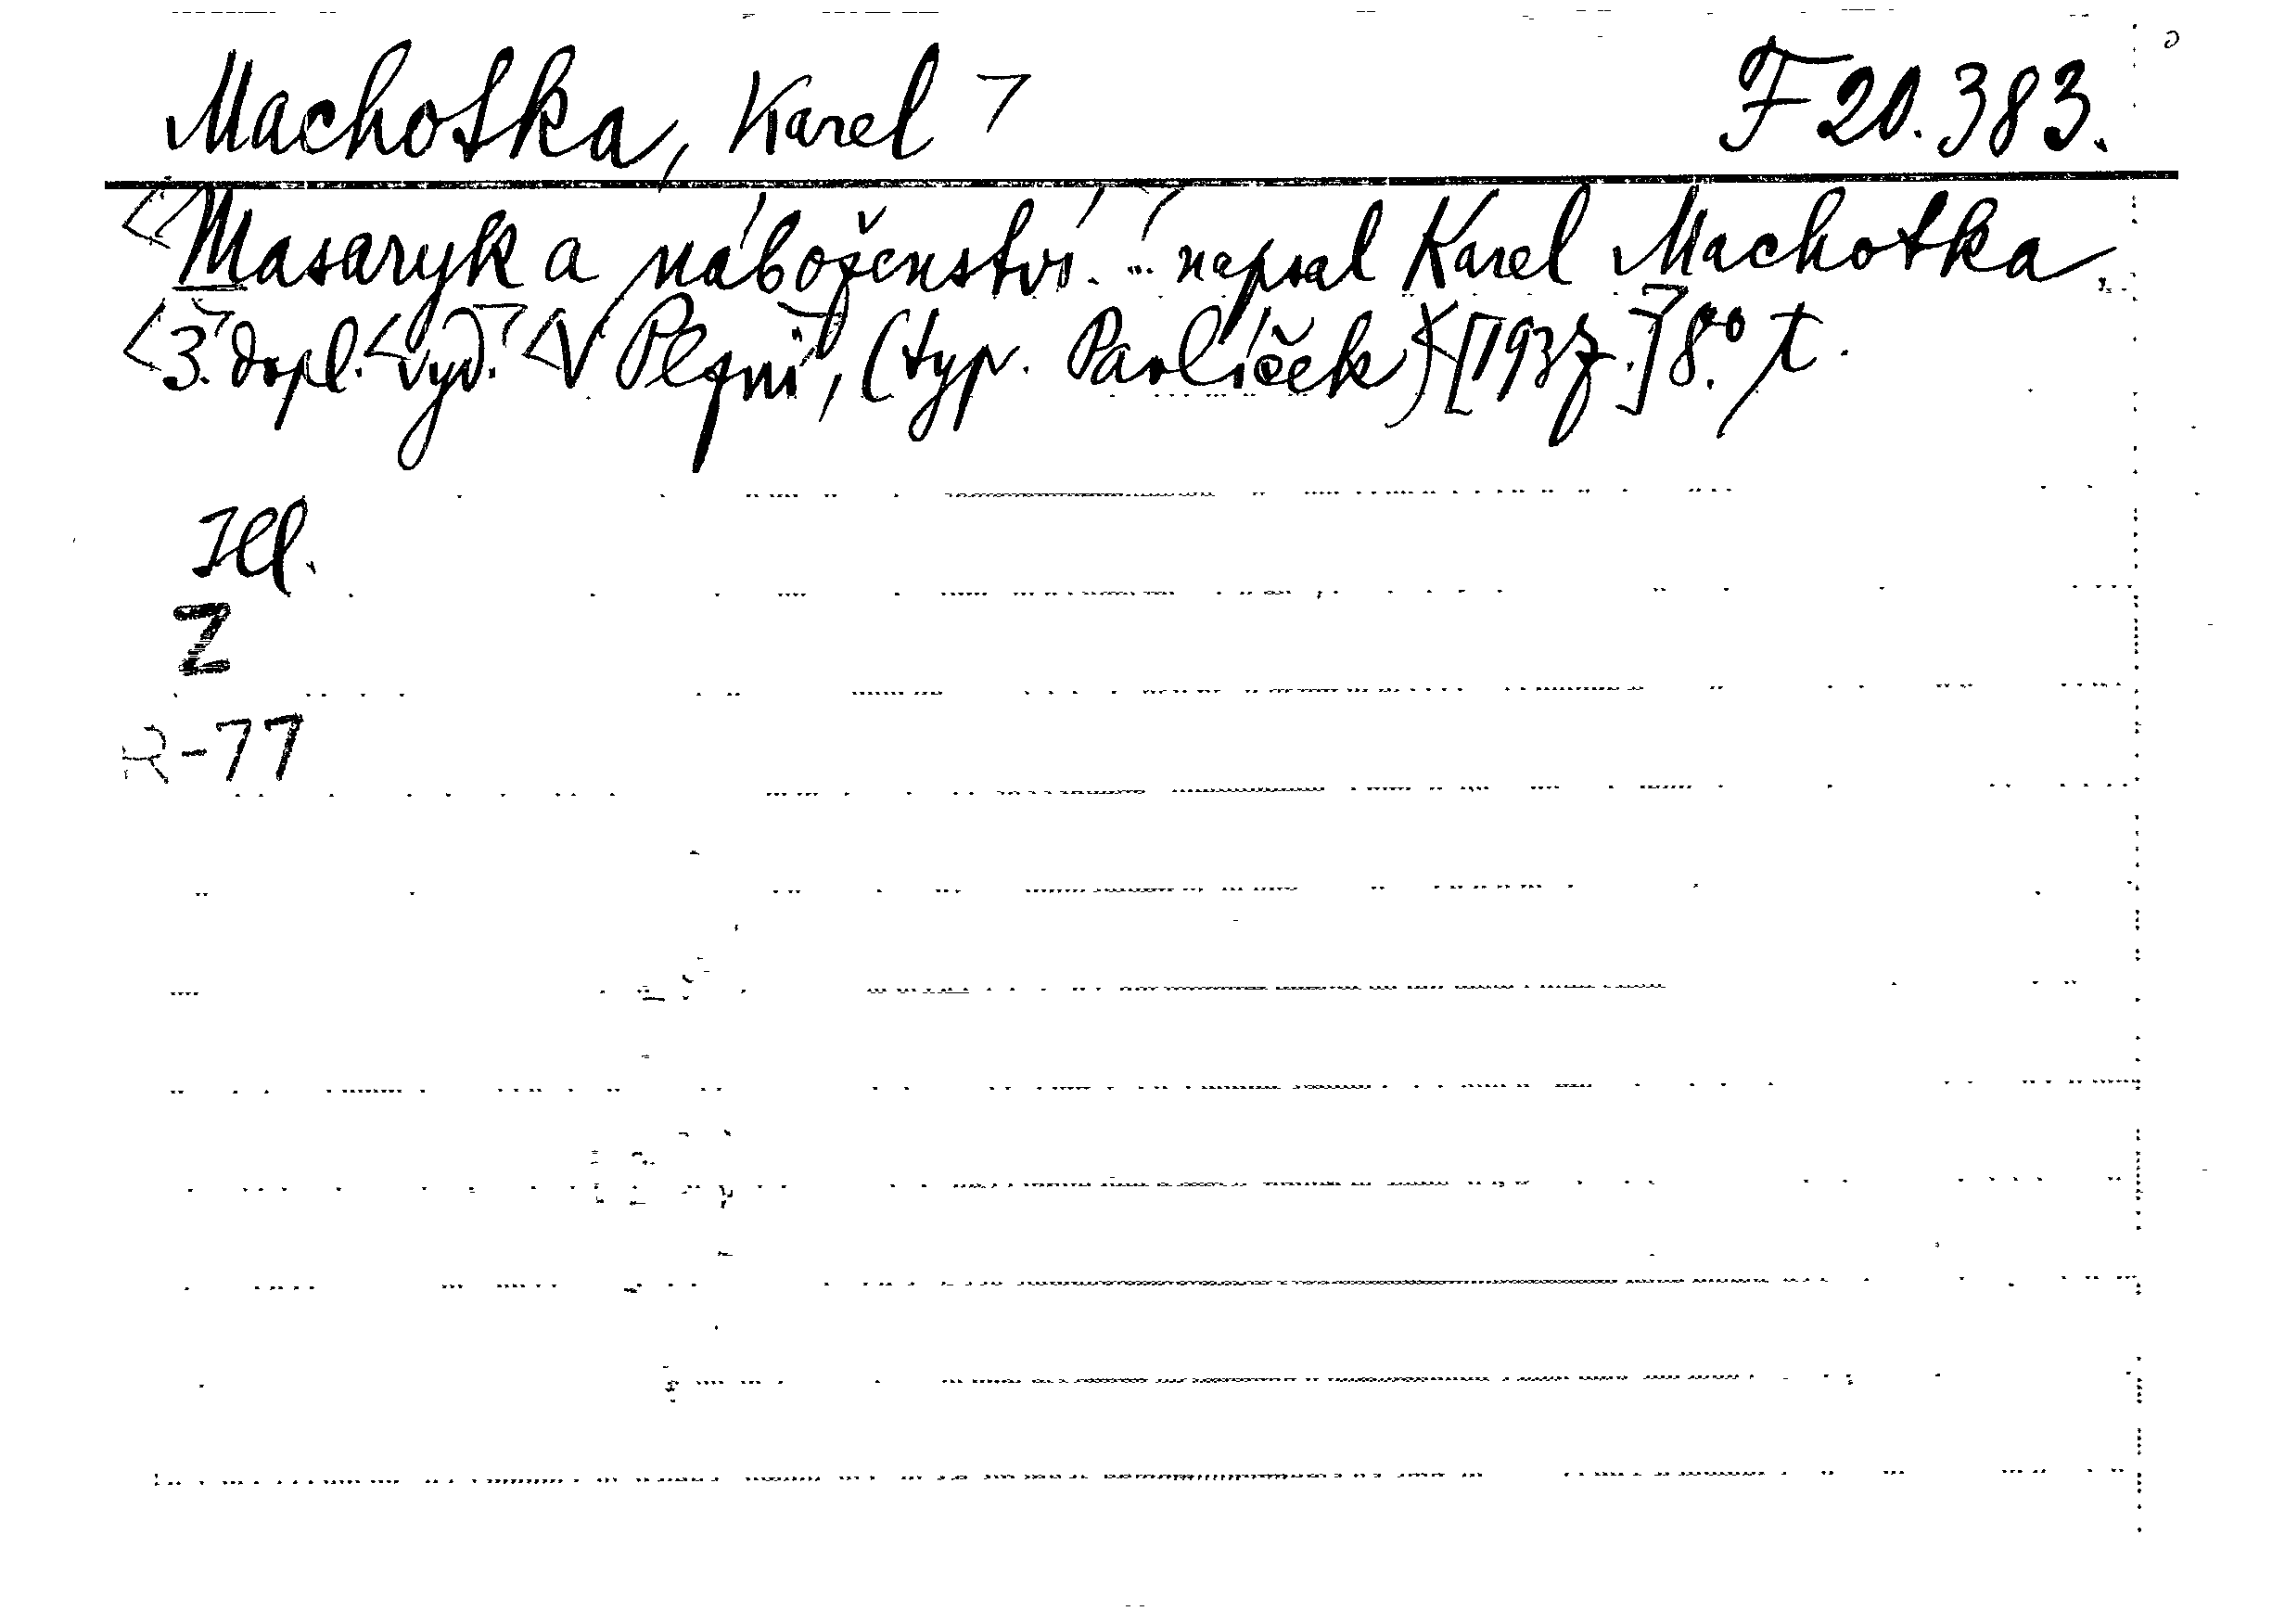 Machotka, Karel F 20.383.
Masaryk a náboženství. ... napsal Karel Machotka.
3. dopl. vyd. V Plzni, (typ. Pavlíček) [1937.] 8°. t.
Ill.
Z
R-77